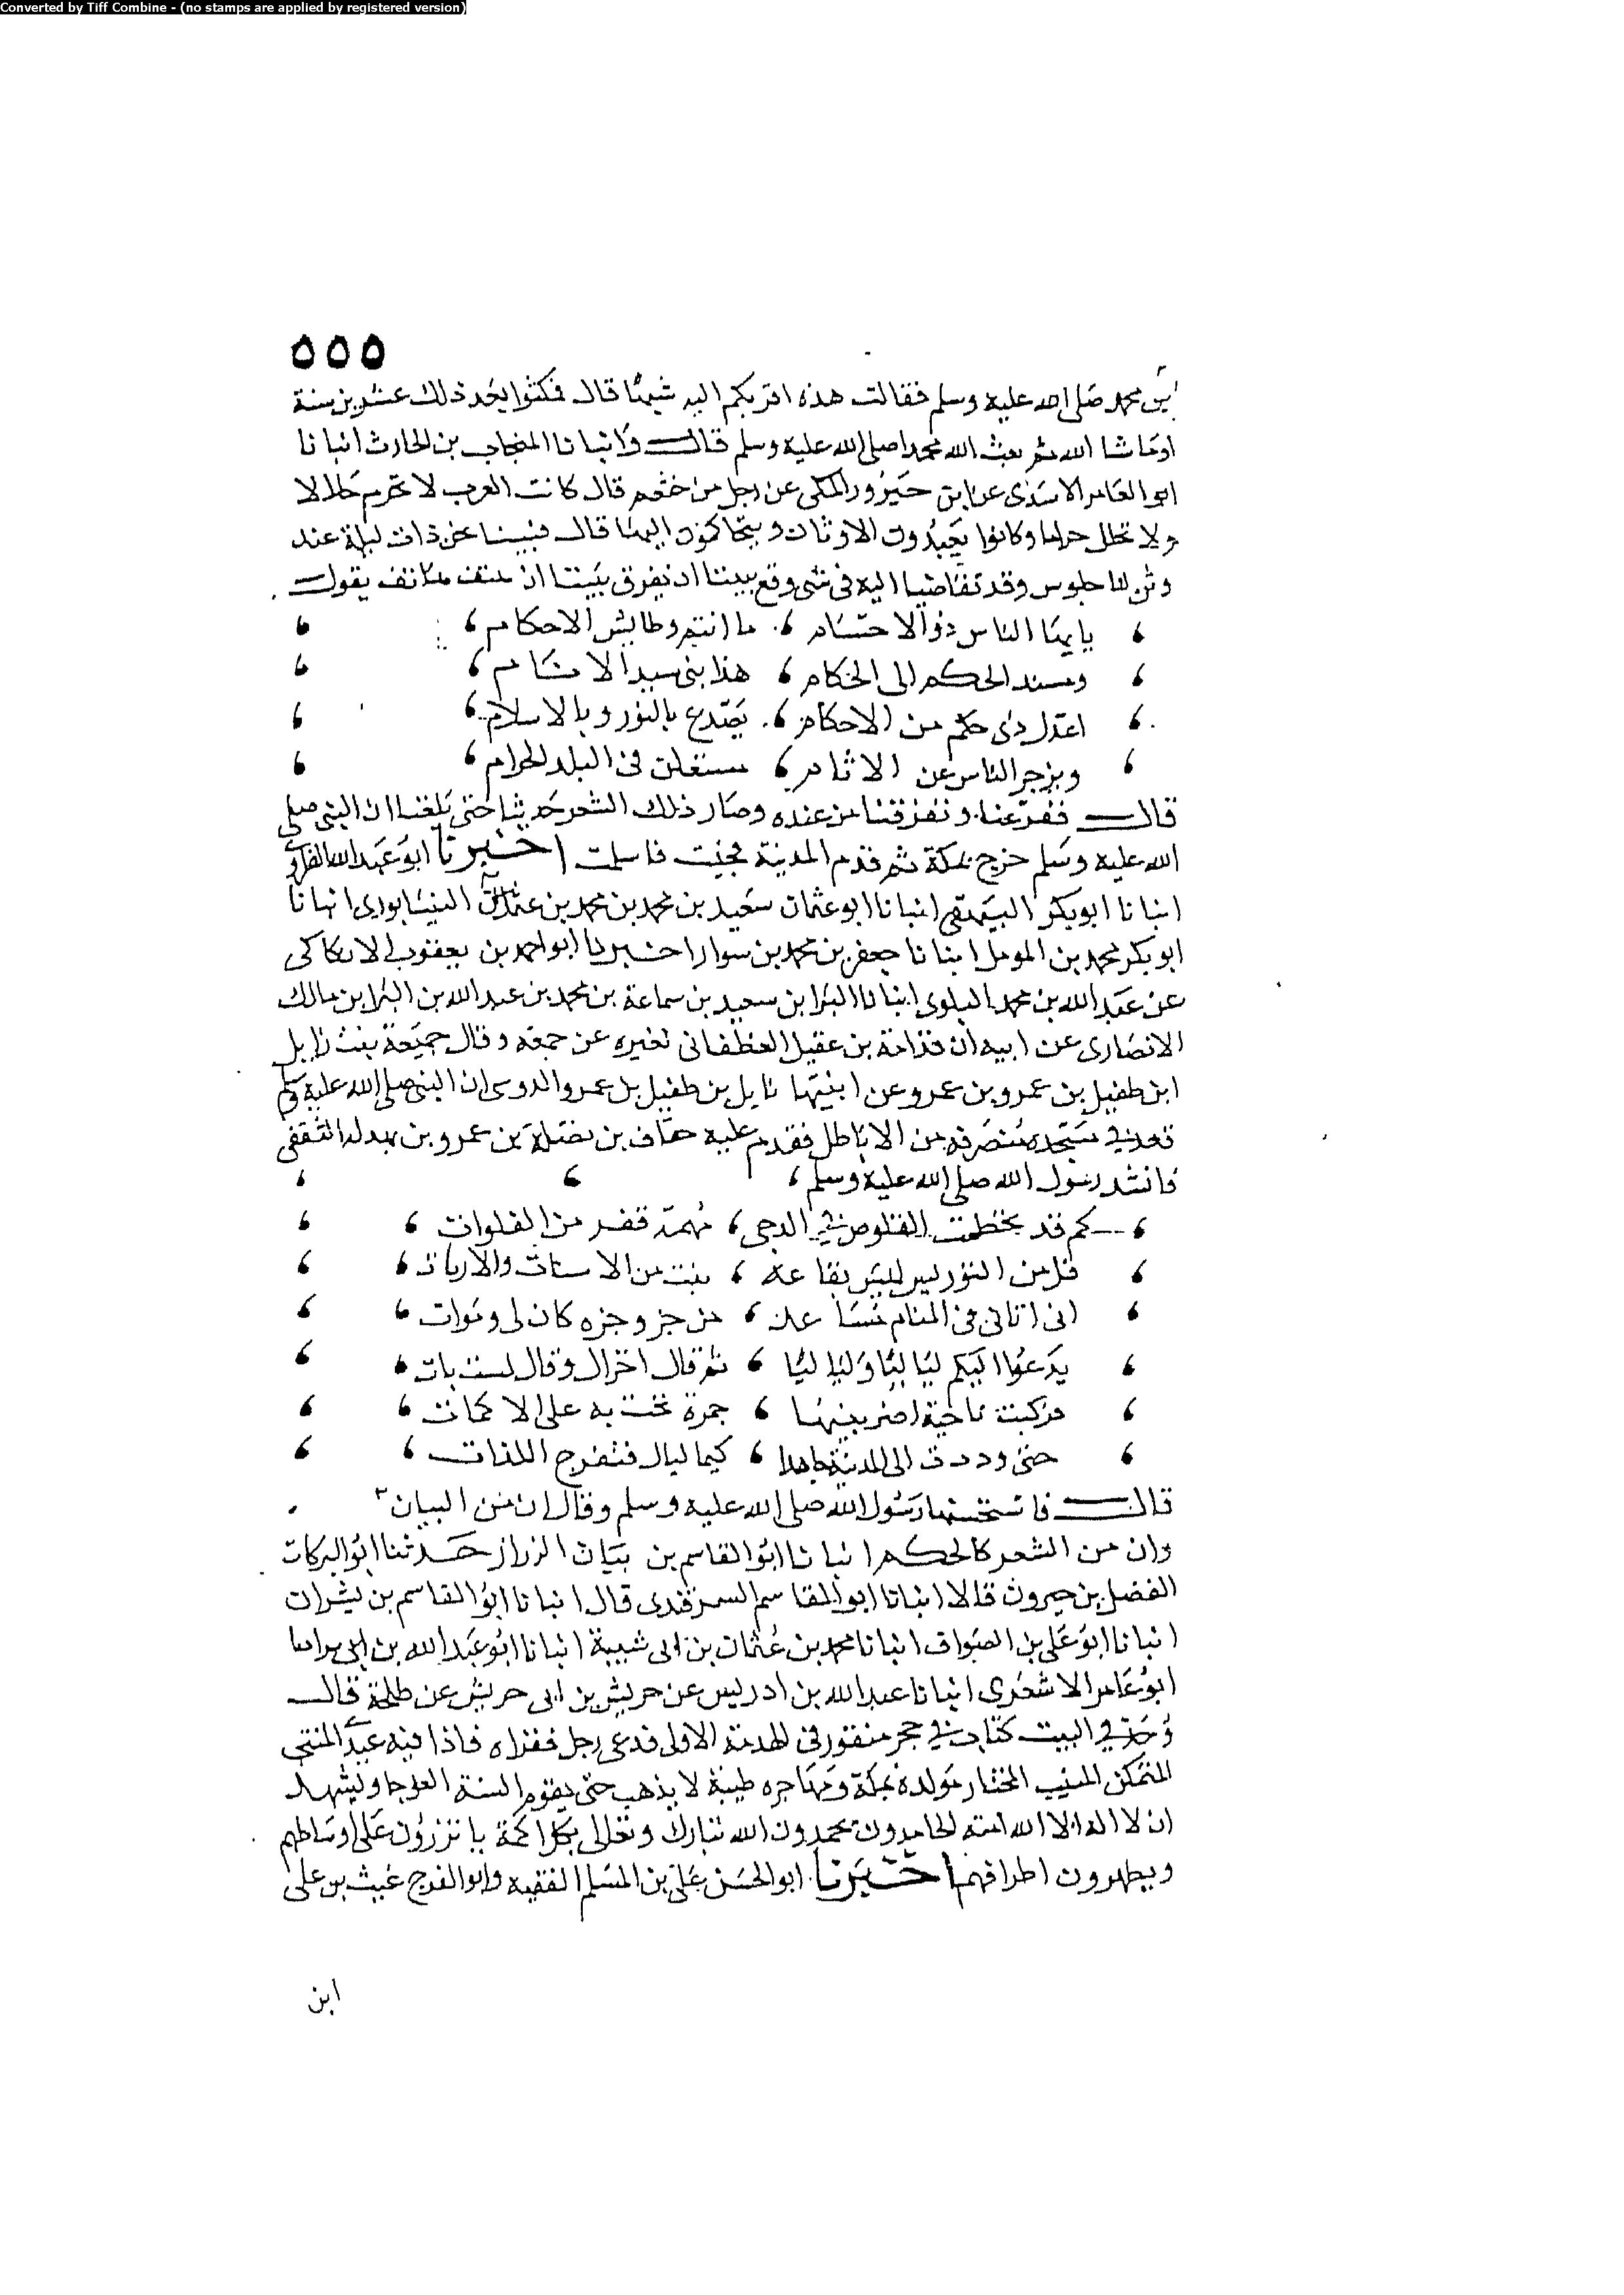 Converted by Tiff Combine - (no stamps are applied by registered version)
٥٥٥
بين محمد صلى الله عليه وسلم فقالت هذه اقربكم اليه شيئا قال فمكثوا بعد ذلك عشرين سنة
اوما شا الله ثم بعث الله محمدا صلى الله عليه وسلم قال وانبانا المنجاب بن الحارث انبانا
ابو العامر الاسدي عن ابن المكى عن رجل من خثعم قال كانت العرب لا تحرم حلالا
ولا تحلل حراما وكانوا يعبدون الاوثان ويتحاكمون اليها قال فبينا نحن ذات ليلة عند
وثن لنا جلوس وقد تقاضينا اليه فى شى وقع بيننا ان يفرق بيننا اذ هتف هاتف يقول
يا ايها الناس ذوالاحسام ما انتم وطايش الاحكام
ومسند الحكم الى الحكام هذا بنى سيد الانام
اعدل ذى حكم من الاحكام يصدع بالنور وبالاسلام
ويزجر الناس عن الاثام مستعلن فى البلد الحرام
قال ففزعنا وتفرقنا من عنده وصار ذلك الشعر حديثا حتى بلغنا ان النبى صلى
الله عليه وسلم خرج بمكة ثم قدم المدينة فجيت فاسلمت اخبرنا ابو عبد الله الفراوى
انبانا ابو بكر البيهقى انبانا ابو عثمان سعيد بن محمد بن محمد بن النيسابورى انبانا
ابو بكر محمد بن المومل انبانا جعفر بن محمد بن سوار اخبرنا ابو احمد بن يعقوب
عن عبد الله بن محمد البلوى انبانا البرا بن سعيد بن سماعة بن محمد بن عبد الله بن البرا بن مالك
الانصارى عن ابيه ان قدامة بن عقيل الغطفانى عن جمعه وقال جميعة بنت زابل
ابن طفيل بن عمرو بن عمرو عن ابنيها نايل بن طفيل بن عمرو الدوسى ان النبى صلى الله عليه وسلم
قعد في مسجده منصرفه من الاباطل فقدم عليه خفاف بن نضلة بن عمرو بن بهدلة الثقفى
فانشد رسول الله صلى الله عليه وسلم
كم قد تخطمت القلوص في الدجى مهمه قفر من الفلوات
فل من النور ليس بقاعه نبت من الاسنات والازمات
انى اتانى فى المنام من جز وجزه كان لى ومواث
يدعوا اليكم لياليا وليا ليا ثم قال اخزال وقال لست بات
فركبت ناجية اضر بنيها جمرة تخب به على الاكمات
حتى وردت الى المدينة جاهدا كيما ليال فتفرج اللذات
قال فاستحسنها رسول الله صلى الله عليه وسلم وقال ان من البيان
وان من الشعر كالحكم انبانا ابو القاسم بن بيان الرزاز حدثنا ابو البركات
الفضل بن خيرون قالا انبانا ابو القاسم السمرقندى قال انبانا ابو القاسم بن بشران
انبانا ابو على بن الصواف انبانا محمد بن عثمان بن ابى شيبة انبانا ابو عبد الله بن
ابو عامر الاشعرى انبانا عبد الله بن ادريس عن حريش بن ابى حريش عن طلحة قال
وجد في البيت كتاب في حجر منقور فى الهدمة الاولى فدعى رجل فقراه فاذا فيه عبدى المنتخب
المتمكن المنيب المختار مولده بمكة ومهاجره طيبة لا يذهب حتى يقوم السنة العوجا وليشهد
ان لا اله الا الله امته الحامدون يحمدون الله تبارك وتعالى بكل اكمة ياتزرون على اوساطهم
ويطهرون اطرافهم اخبرنا ابو الحسن على بن المسلم الفقيه وابو الفرج غيث بن على
ابن